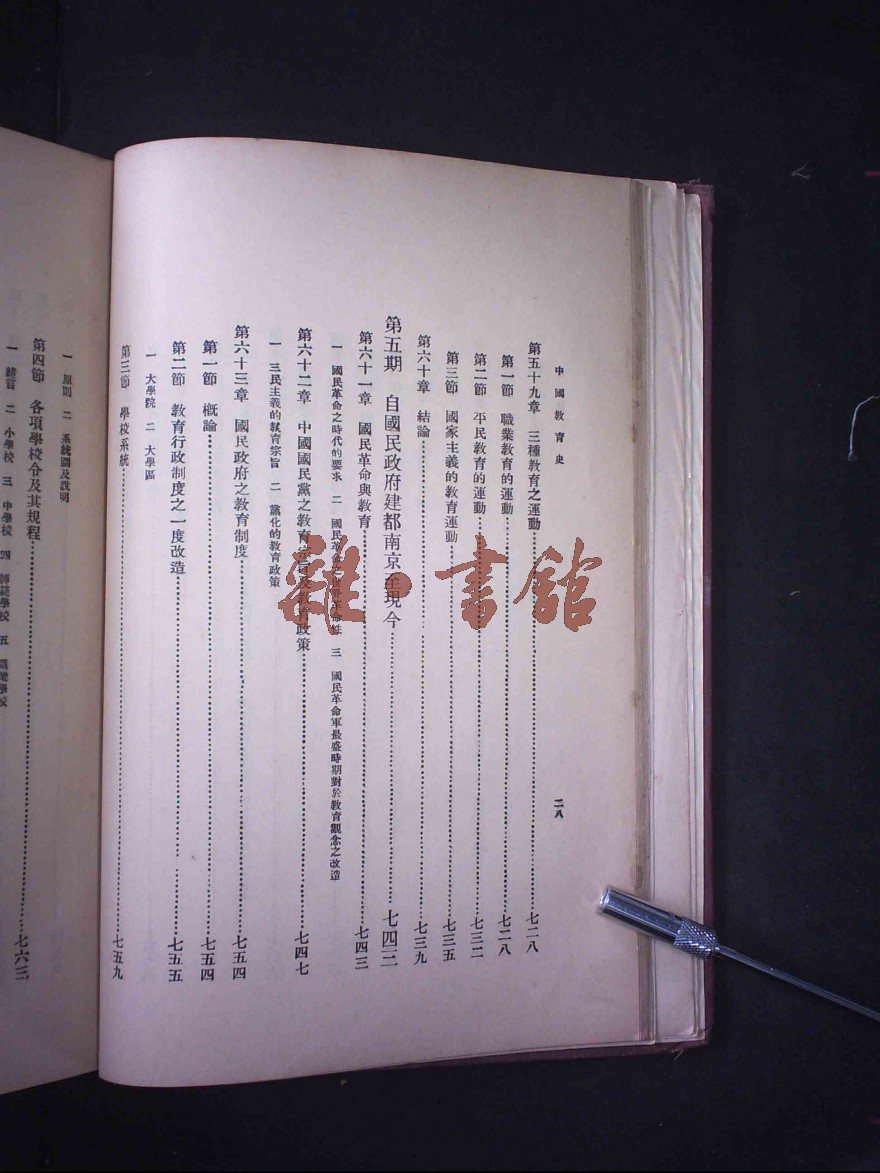 中國教育史
二八
第五十九章 三種教育之運動…………七二八
第一節 職業教育的運動…………七二八
第二節 平民教育的運動…………七三二
第三節 國家主義的教育運動…………七三五
第六十章 結論…………七三九
第五期 自國民政府建都南京至現今…………七四三
第六十一章 國民革命與教育…………七四三
一 國民革命之時代的要求 二 國民革命之世界革命性 三 國民革命軍最盛時期對於教育觀念之改造
第六十二章 中國國民黨之教育宗旨及教育政策…………七四七
一 三民主義的教育宗旨 二 黨化的教育政策
第六十三章 國民政府之教育制度…………七五四
第一節 概論…………七五四
第二節 教育行政制度之一度改造…………七五五
一 大學院 二 大學區
第三節 學校系統…………七五九
一 原則 二 系統圖及說明
第四節 各項學校令及其規程…………七六三
一 總旨 二 小學校 三 中學校 四 師範學校 五 職業學校
雜·書館